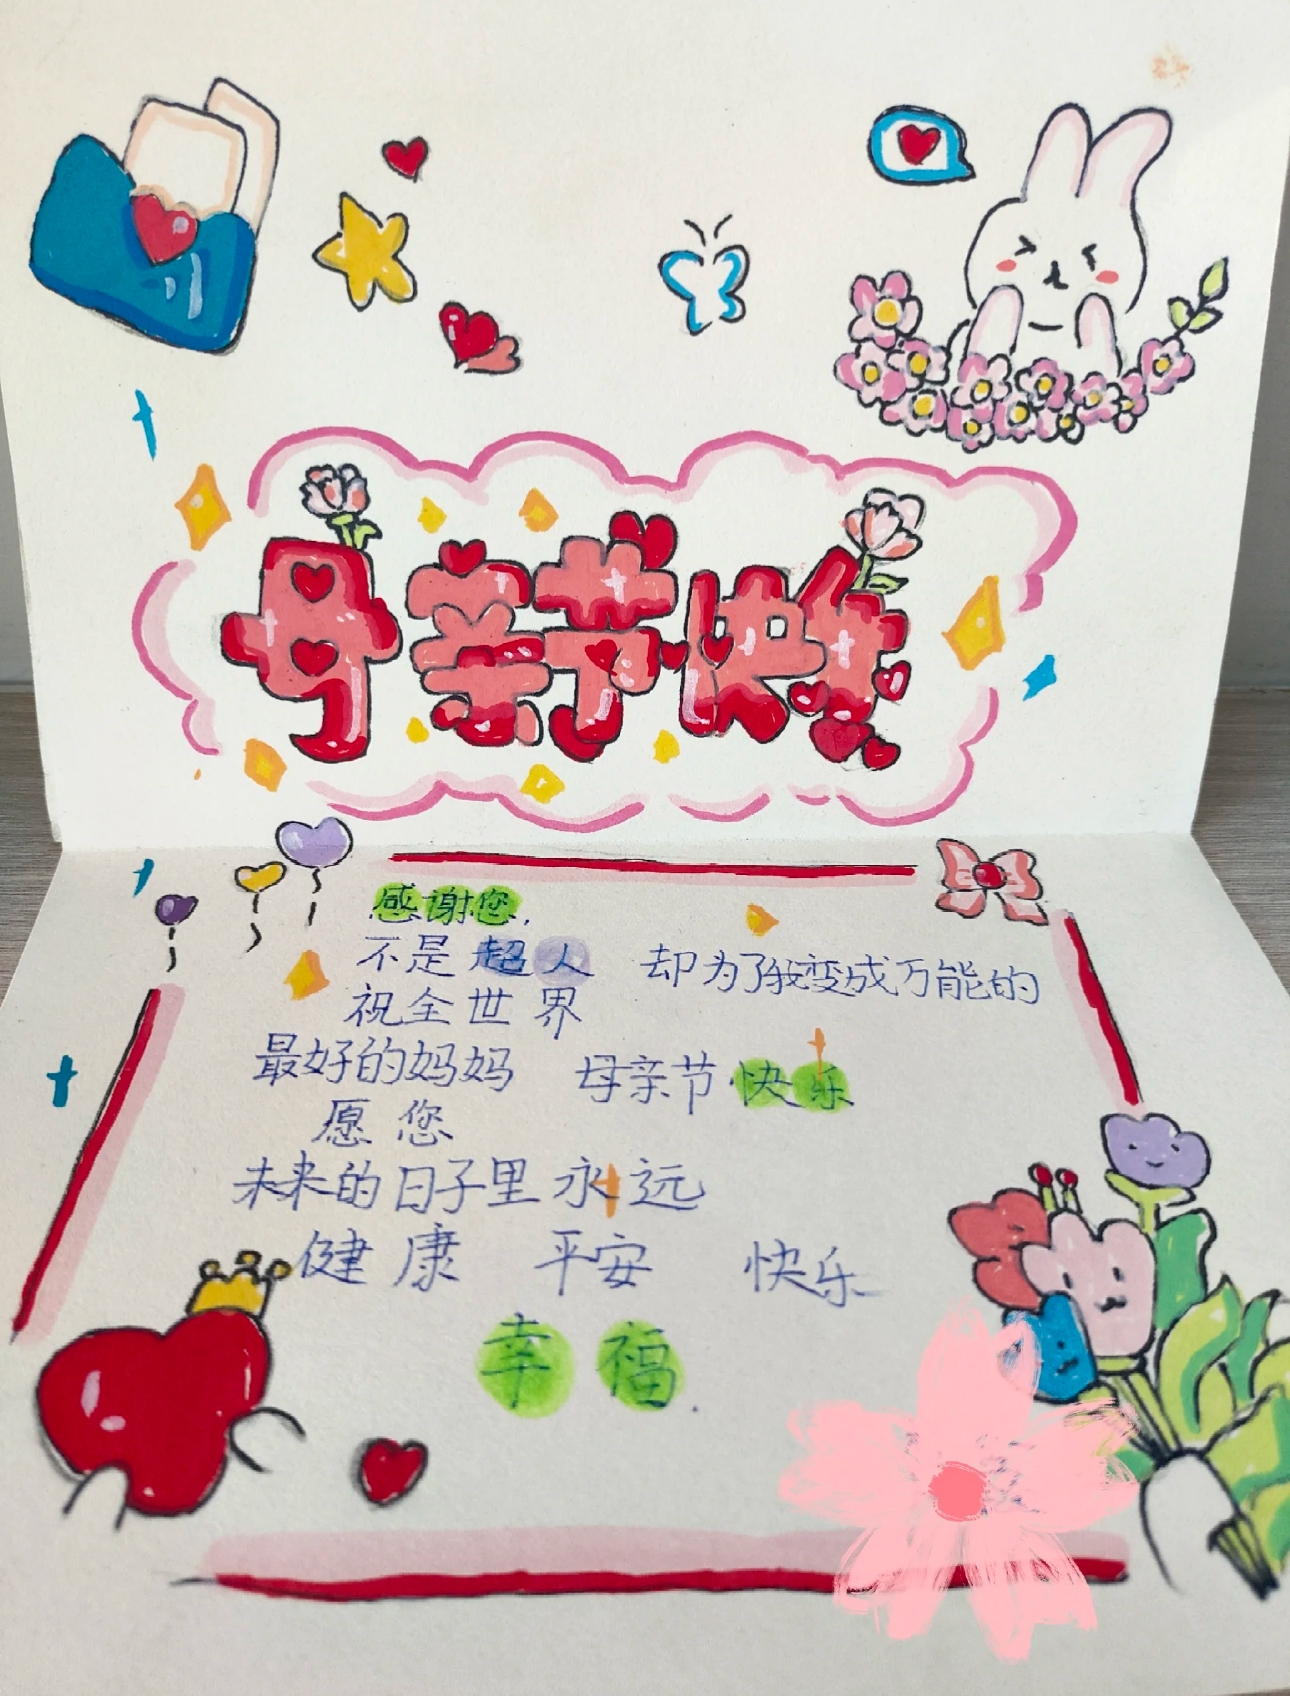 母亲节快乐
感谢您，
不是超人 却为了我变成万能的
祝全世界
最好的妈妈 母亲节快乐
愿您
未来的日子里永远
健康 平安 快乐
幸福.